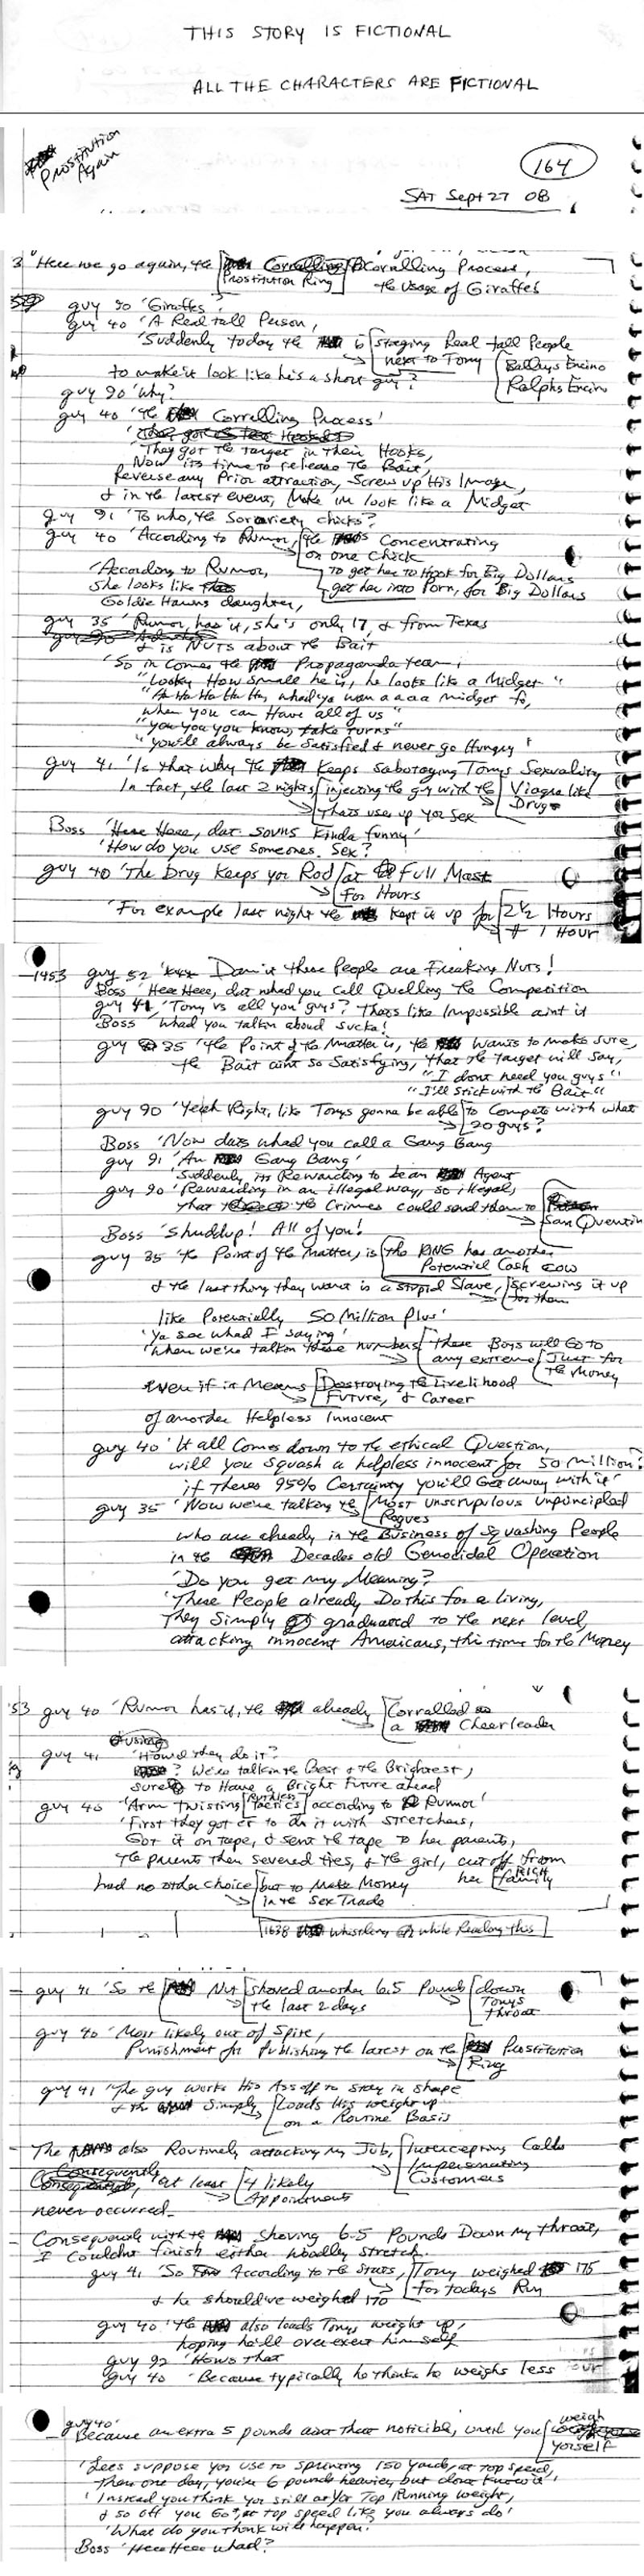 THIS STORY IS FICTIONAL
ALL THE CHARACTERS ARE FICTIONAL
Prostitution
Again
164
SAT Sept 27 08
3 "Here we go again, the Prostitution Ring Corralling Process,
the usage of Giraffes
guy 90 'Giraffes'
guy 40 'A Real tall Person,
'Suddenly today the is staging Real tall People
next to Tony Ballys Encino
Ralphs Encino
to make it look like he's a short guy?
guy 90 'Why?
guy 40 'the Corralling Process'
'They got the target in their Hooks,
Now its time to release the Bait,
Reverse any Prior attraction, Screw up His Image,
& in the latest event, Make im look like a Midget
guy 91 'To who, the Sorariety chicks?
guy 40 'According to Rumor, the Concentrating
on one Chick
to get her to Hook for Big Dollars
get her into Porn, for Big Dollars
'According to Rumor,
she looks like
Goldie Hawns daughter,
guy 35 'Rumor has it, she's only 17, & from Texas
& is NUTS about the Bait
'So in comes the Propaganda team;
"Looky How small he is, he looks like a Midget"
"Ha Ha Ha Ha Ha, whad ya wan a aaaa midget fo,
when you can Have all of us"
"you you you know, take turns"
"you'll always be Satisfied & never go Hungry"
guy 41 'Is that why the Keeps Sabotaging Tonys Sexuality
In fact, the last 2 nights injecting the guy with the Viagra like
Drugs
Thats uses up yor Sex
Boss 'Heee Heee, dat souns Kinda funny'
'How do you use someones Sex?
guy 40 'The Drug Keeps yor Rod at Full Mast
For Hours
'For example last night the kept it up for 2 1/2 Hours
& 1 Hour
1453 guy 52 'Damit these People are Freaking Nuts!
Boss 'Heee Heee, dat whad you call Quelling the Competition
guy 41 'Tony vs all you guys? Thats like Impossible aint it
Boss 'Whad you talkin aboud sucka!
guy 35 'the Point of the Matter is, the Wants to make sure,
the Bait aint so Satisfying, that the target will say,
"I dont need you guys"
"I'll stick with the Bait"
guy 90 'Yeah Right, like Tonys gonna be able to Compete with what
20 guys?
Boss 'Now dats whad you call a Gang Bang
guy 91 'An Gang Bang'
'Suddenly its Rewarding to be an Agent
guy 90 'Rewarding in an illegal way, so illegal,
that the Crimes could send them to
San Quentin
Boss 'Shuddup! All of you!
guy 35 'the Point of the Matter, is the RING has another
Potential Cash Cow
& the last thing they want is a stupid Slave, Screwing it up
for them
like Potentially 50 Million Plus'
'Ya see whad I saying'
'When we're talkin these numbers these Boys will Go to
any extreme Just for
the Money
even if it Means Destroying the Livelihood
Future, & Career
of anorder Helpless Innocent
guy 40 'It all Comes down to the ethical Question,
will you Squash a helpless innocent for 50 million?
if Theres 95% Certainty you'll Get away with it'
guy 35 'Now we're talking the Most unscrupulous unprincipled
Rogues
who are already in the Business of Squashing People
in the Decades old Genocidal Operation
'Do you get my Meaning?
'These People already Do this for a living,
They Simply graduated to the next level,
attacking innocent Americans, this time for the Money
'53 guy 40 'Rumor has it, the already Corralled
a Cheerleader
guy 41 'How'd they do it?
? We're talkin the Best & the Brightest,
sure to Have a Bright Future ahead
guy 40 'Arm twisting Ruthless Tactics according to Rumor'
'First they got er to do it with stretchers,
Got it on tape, & sent the tape to her parents,
The parents then severed ties, & the girl, cut off from
her RICH family
had no order choice but to Make Money
in the Sex Trade
1638 Whistling while Reading this
guy 41 'So the Nut shoved another 6.5 Pounds down
the last 2 days Tonys
throat
guy 40 'Most likely out of Spite,
Punishment for Publishing the latest on the Prostitution
Ring
guy 41 'The guy works His Ass off to stay in shape
& the Simply Loads His weight up
on a Routine Basis
- The also Routinely attacking my Job, Intercepting Calls
Impersonating
Customers
Consequently, at least 4 likely
Appointments
never occurred.
- Consequently with the Shoving 6.5 Pounds Down my throat,
I Couldnt finish either Woodley stretch.
guy 41 'So According to the Stats, Tony weighed 175
for todays Run
& he should've weighed 170
guy 40 'the also loads Tonys weight up,
hoping he'll over exert himself
guy 92 'Hows that
guy 40 'Because typically he thinks he weighs less
guy 40'
Because an extra 5 pounds aint that noticible, until you weigh
yorself
'Lets suppose yor use to sprinting 150 yards, at top speed,
Then one day, you're 6 pounds heavier, but dont know it'
'Instead you think yor still at yor Top Running weight,
& so off you Go, at top speed like you always do'
'What do you think will happen?
Boss 'Heee Heee whad?